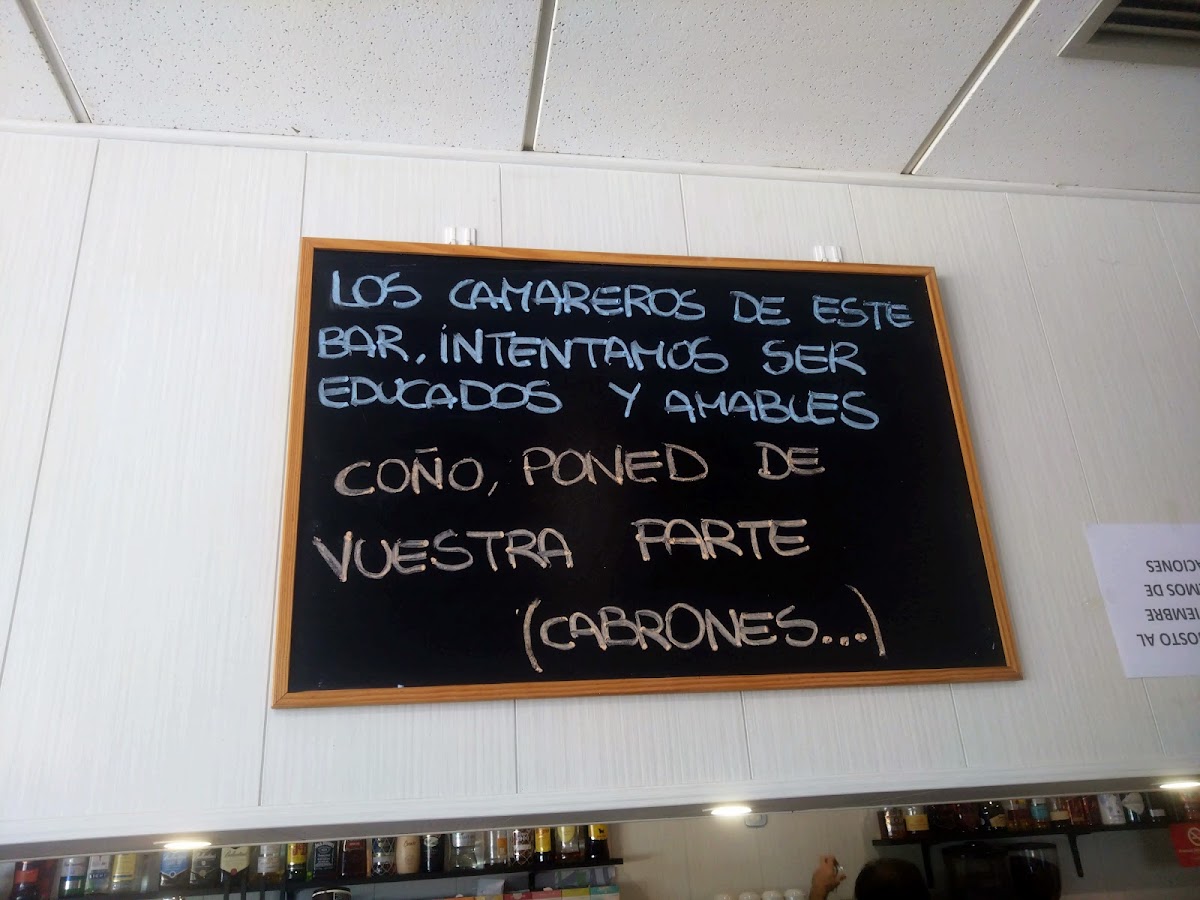 LOS CAMAREROS DE ESTE
BAR, INTENTAMOS SER
EDUCADOS Y AMABLES
COÑO, PONED DE
VUESTRA PARTE
(CABRONES...)
OSTO AL
IEMBRE
MOS DE
ACIONES